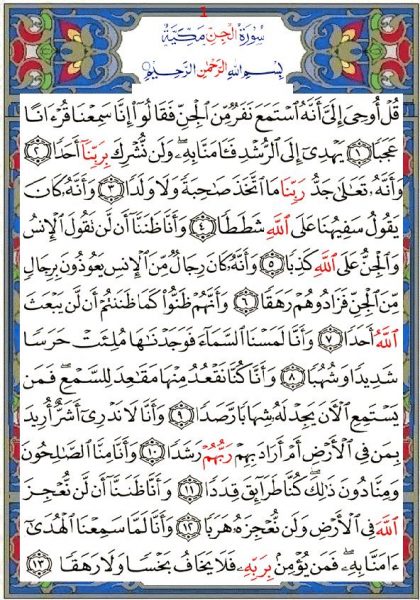 1
سُورَةُ الْجِنِّ مَكِّيَّةٌ
بِسْمِ اللَّهِ الرَّحْمَٰنِ الرَّحِيمِ
قُلْ أُوحِيَ إِلَيَّ أَنَّهُ اسْتَمَعَ نَفَرٌ مِّنَ الْجِنِّ فَقَالُوا إِنَّا سَمِعْنَا قُرْءَانًا
عَجَبًا ١ يَهْدِي إِلَى الرُّشْدِ فَـَٔامَنَّا بِهِ ۖ وَلَن نُّشْرِكَ بِرَبِّنَا أَحَدًا ٢
وَأَنَّهُ تَعَالَىٰ جَدُّ رَبِّنَا مَا اتَّخَذَ صَاحِبَةً وَلَا وَلَدًا ٣ وَأَنَّهُ كَانَ
يَقُولُ سَفِيهُنَا عَلَى اللَّهِ شَطَطًا ٤ وَأَنَّا ظَنَنَّا أَن لَّن تَقُولَ الْإِنسُ
وَالْجِنُّ عَلَى اللَّهِ كَذِبًا ٥ وَأَنَّهُ كَانَ رِجَالٌ مِّنَ الْإِنسِ يَعُوذُونَ بِرِجَالٍ
مِّنَ الْجِنِّ فَزَادُوهُمْ رَهَقًا ٦ وَأَنَّهُمْ ظَنُّوا كَمَا ظَنَنتُمْ أَن لَّن يَبْعَثَ
اللَّهُ أَحَدًا ٧ وَأَنَّا لَمَسْنَا السَّمَآءَ فَوَجَدْنَٰهَا مُلِئَتْ حَرَسًا
شَدِيدًا وَشُهُبًا ٨ وَأَنَّا كُنَّا نَقْعُدُ مِنْهَا مَقَٰعِدَ لِلسَّمْعِ ۖ فَمَن
يَسْتَمِعِ الْآنَ يَجِدْ لَهُ شِهَابًا رَّصَدًا ٩ وَأَنَّا لَا نَدْرِي أَشَرٌّ أُرِيدَ
بِمَن فِي الْأَرْضِ أَمْ أَرَادَ بِهِمْ رَبُّهُمْ رَشَدًا ١٠ وَأَنَّا مِنَّا الصَّٰلِحُونَ
وَمِنَّا دُونَ ذَٰلِكَ ۖ كُنَّا طَرَآئِقَ قِدَدًا ١١ وَأَنَّا ظَنَنَّا أَن لَّن نُّعْجِزَ
اللَّهَ فِي الْأَرْضِ وَلَن نُّعْجِزَهُ هَرَبًا ١٢ وَأَنَّا لَمَّا سَمِعْنَا الْهُدَىٰ
ءَامَنَّا بِهِ ۖ فَمَن يُؤْمِن بِرَبِّهِ فَلَا يَخَافُ بَخْسًا وَلَا رَهَقًا ١٣